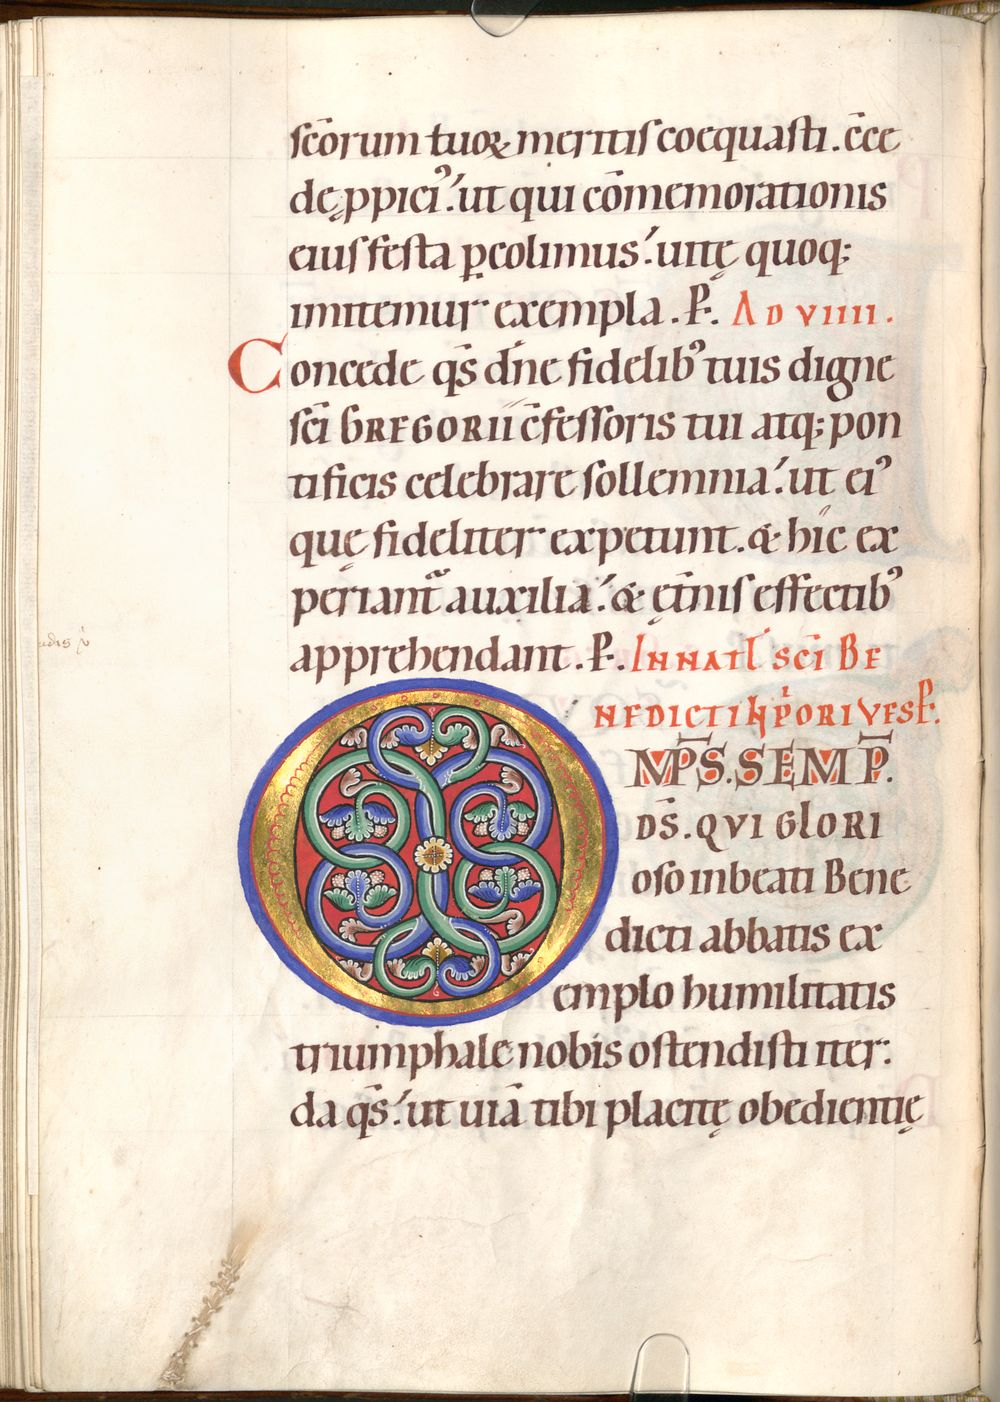 sc̄orum tuoꝝ meritis coequasti. c̄ce
de ꝓpiciꝰ. ut qui cōmemorationis
eius festa ꝑcolimus. uitę quoq;
imitemur exempla. P̱. AD VIIII.
Concede qs̄ dn̄e fidelibꝰ tuis digne
sc̄i GREGORII c̄fessoris tui atq; pon
tificis celebrare sollemnia. ut eiꝰ
quę fideliter expetunt. & hic ex
periant᷑ auxilia. & ęt̄nis effectibꝰ
apprehendant. P̱. IN NATL̄ SC̄I BE
NEDICTI
OMP̄S. SEMP̄.
DS̄. QVI GLORI
oso in beati Bene
dicti abbatis ex
emplo humilitatis
triumphale nobis ostendisti iter.
da qs̄. ut uiā tibi placitę obedientię